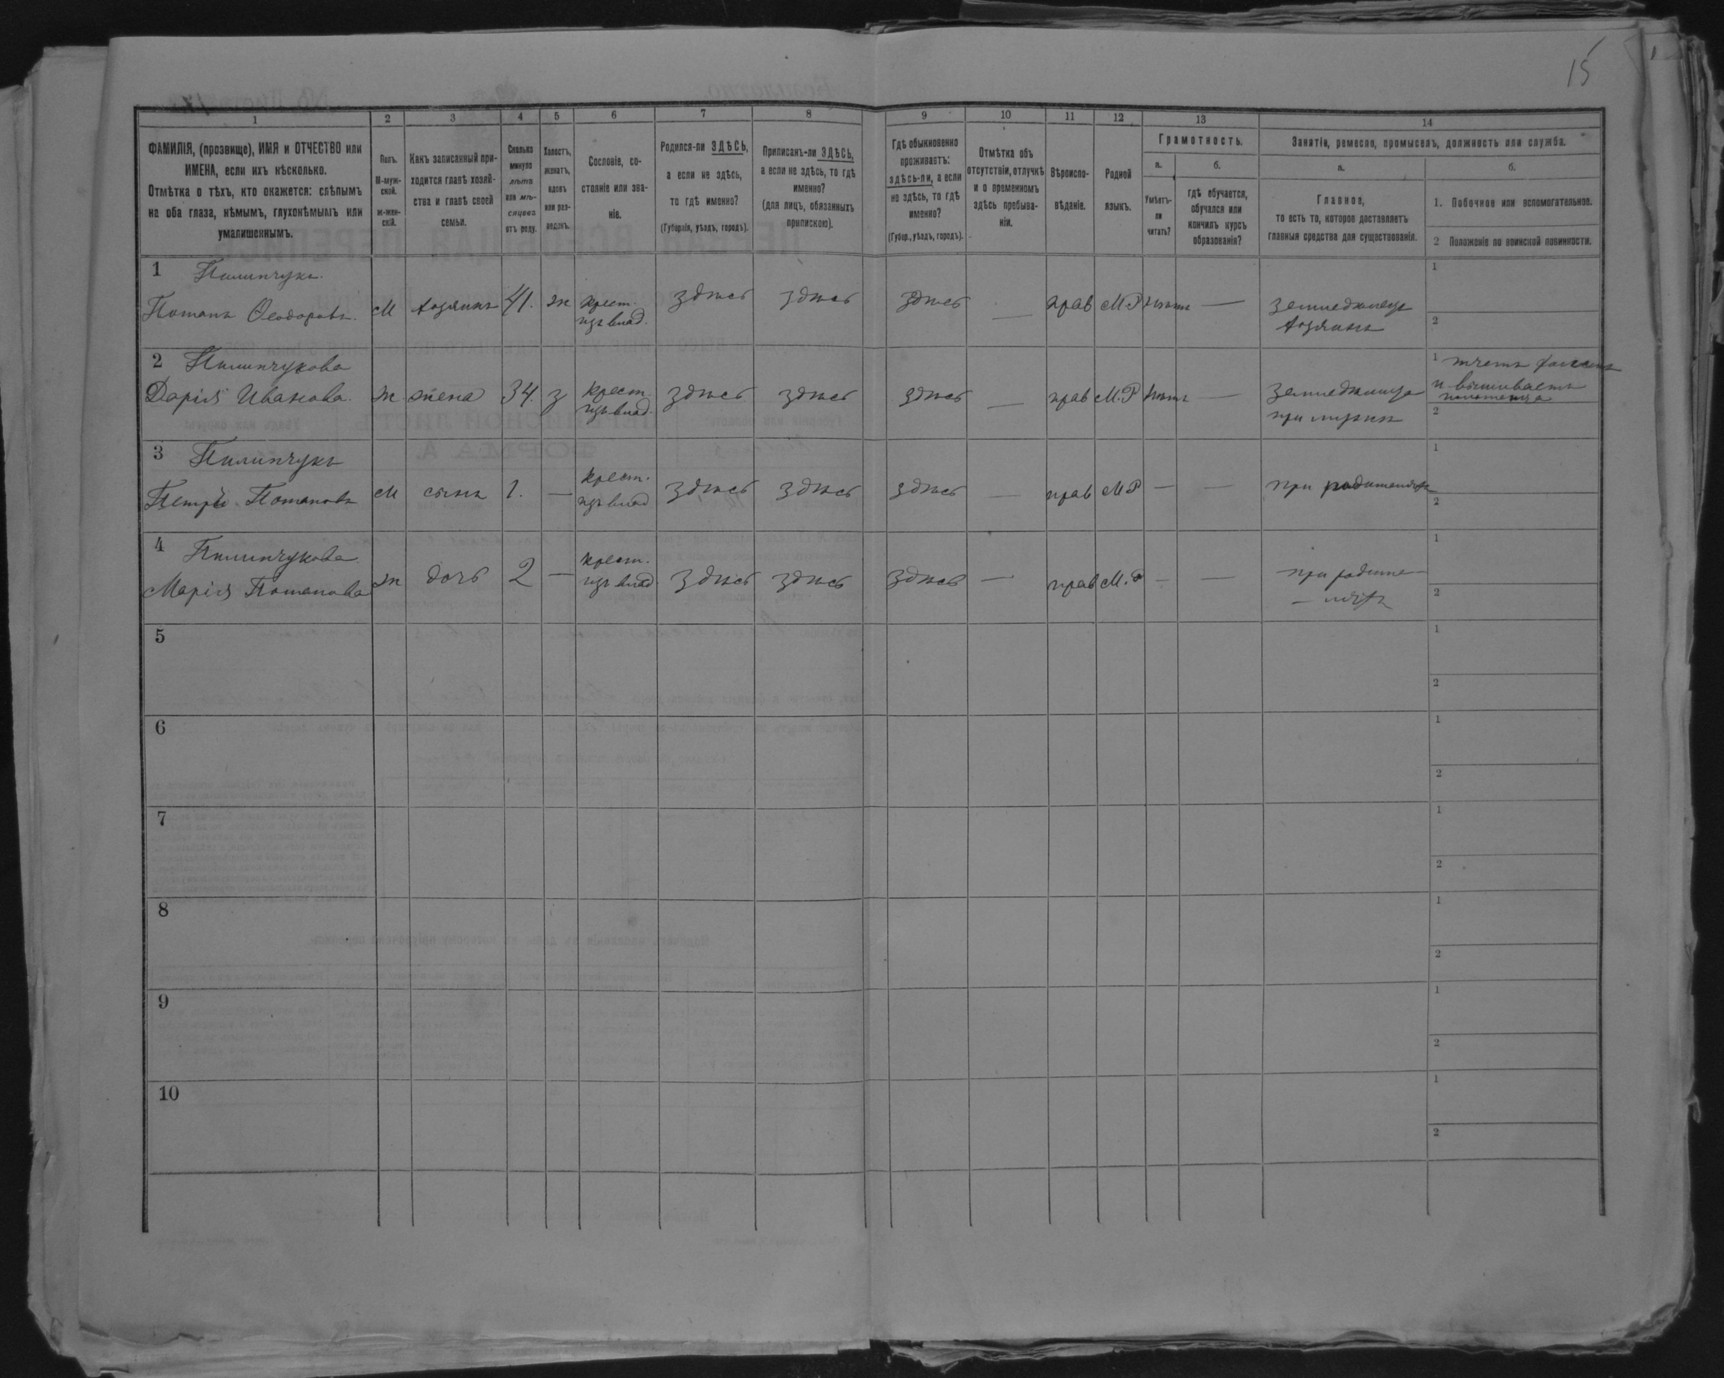 15
1
2
3
4
5
6
7
8
9
10
11
12
13
14
ФАМИЛІЯ, (прозвище), ИМЯ и ОТЧЕСТВО или
ИМЕНА, если ихъ нѣсколько.
Отмѣтка о тѣхъ, кто окажется: слѣпымъ
на оба глаза, нѣмымъ, глухонѣмымъ или
умалишеннымъ.
Полъ.
М-муж-
ской.
ж-жен-
скій.
Какъ записанный при-
ходится главѣ хозяй-
ства и главѣ своей
семьи.
Сколько
минуло
лѣтъ
или мѣ-
сяцевъ
отъ роду.
Холостъ,
женатъ,
вдовъ
или раз-
веденъ.
Сословіе, со-
стояніе или зва-
ніе.
Родился-ли ЗДѢСЬ,
а если не здѣсь,
то гдѣ именно?
(Губернія, уѣздъ, городъ).
Приписанъ-ли ЗДѢСЬ,
а если не здѣсь, то гдѣ
именно?
(для лицъ, обязанныхъ
припискою).
Гдѣ обыкновенно
проживаетъ:
здѣсь-ли, а если
не здѣсь, то гдѣ
именно?
(Губер., уѣздъ, городъ).
Отмѣтка объ
отсутствіи, отлучкѣ
и о временномъ
здѣсь пребыва-
ніи.
Вѣроиспо-
вѣданіе.
Родной
языкъ.
Грамотность.
а.
б.
Умѣетъ-
ли
читать?
гдѣ обучается,
обучался или
кончилъ курсъ
образованія?
Занятіе, ремесло, промыселъ, должность или служба.
а.
б.
Главное,
то есть то, которое доставляетъ
главныя средства для существованія.
1. Побочное или вспомогательное.
2 Положеніе по воинской повинности.
1 Пилипчукъ
Потапъ Ѳеодоровъ м хозяинъ 41. ж крест. изъ влад. здѣсь здѣсь здѣсь — прав М.Р нѣтъ — земледѣлецъ хозяинъ
1
2
2 Пилипчукова
Дарія Иванова ж жена 34 з крест. изъ влад. здѣсь здѣсь здѣсь — прав М.Р нѣтъ — земледѣлица при мужѣ
1
и вышиваетъ
2
3 Пилипчукъ
Петръ Потаповъ м сынъ 1. — крест. изъ влад здѣсь здѣсь здѣсь — прав М.Р — — при родителяхъ
1
2
4 Пилипчукова
Марія Потапова ж дочь 2 — крест. изъ влад здѣсь здѣсь здѣсь — прав М.Р — — при родите-
ляхъ
1
2
5
1
2
6
1
2
7
1
2
8
1
2
9
1
2
10
1
2